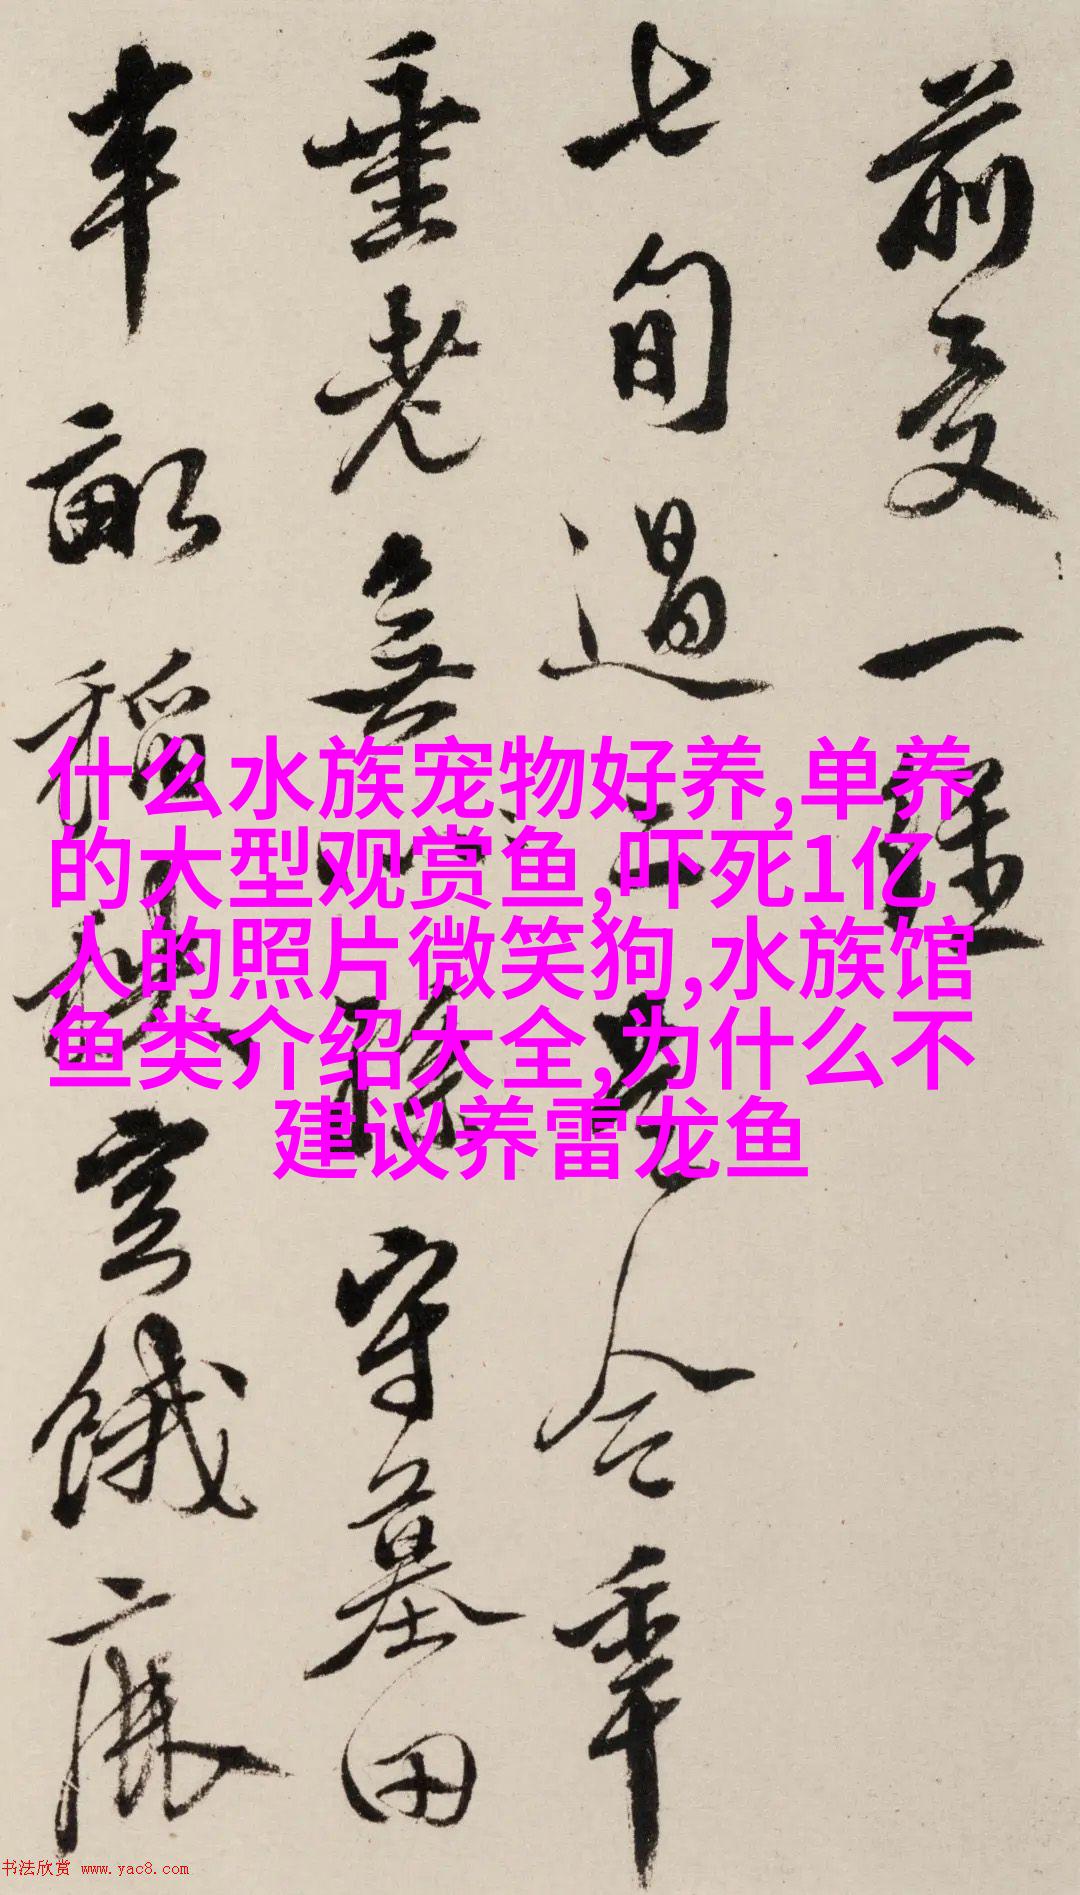 前受一
七旬過二是今年
垂老無守墓田
半畝稻空餓
什么水族宠物好养,单养
的大型观赏鱼,吓死1亿
人的照片微笑狗,水族馆
鱼类介绍大全,为什么不
建议养雷龙鱼
书法欣赏 www.yac8.com